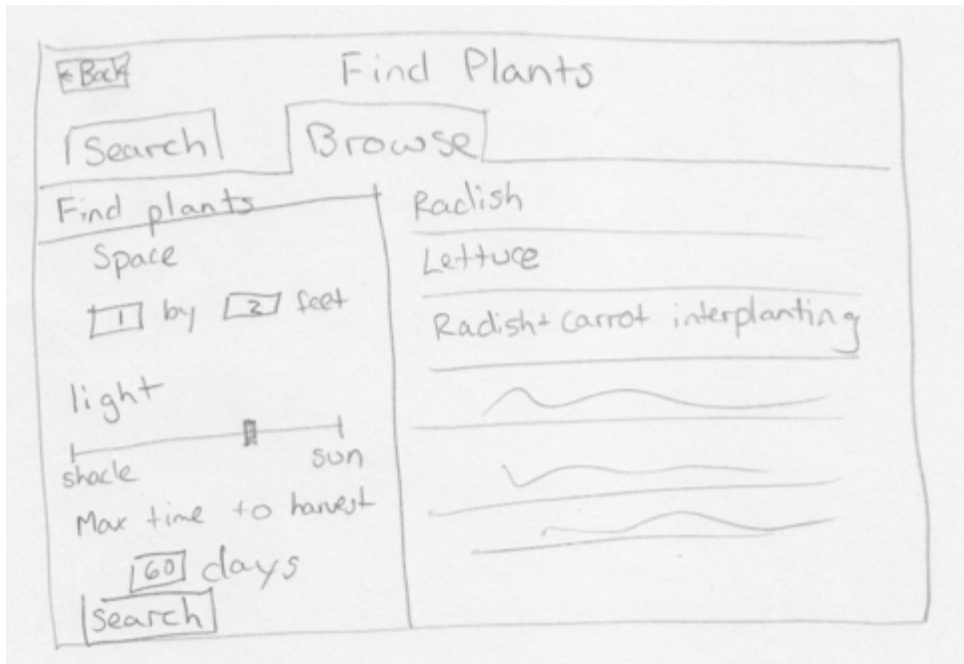 < Back
Find Plants
Search
Browse
Find plants
Space
1 by 2 feet
light
shade
sun
Max time to harvest
60 days
Search
Radish
Lettuce
Radish + carrot interplanting